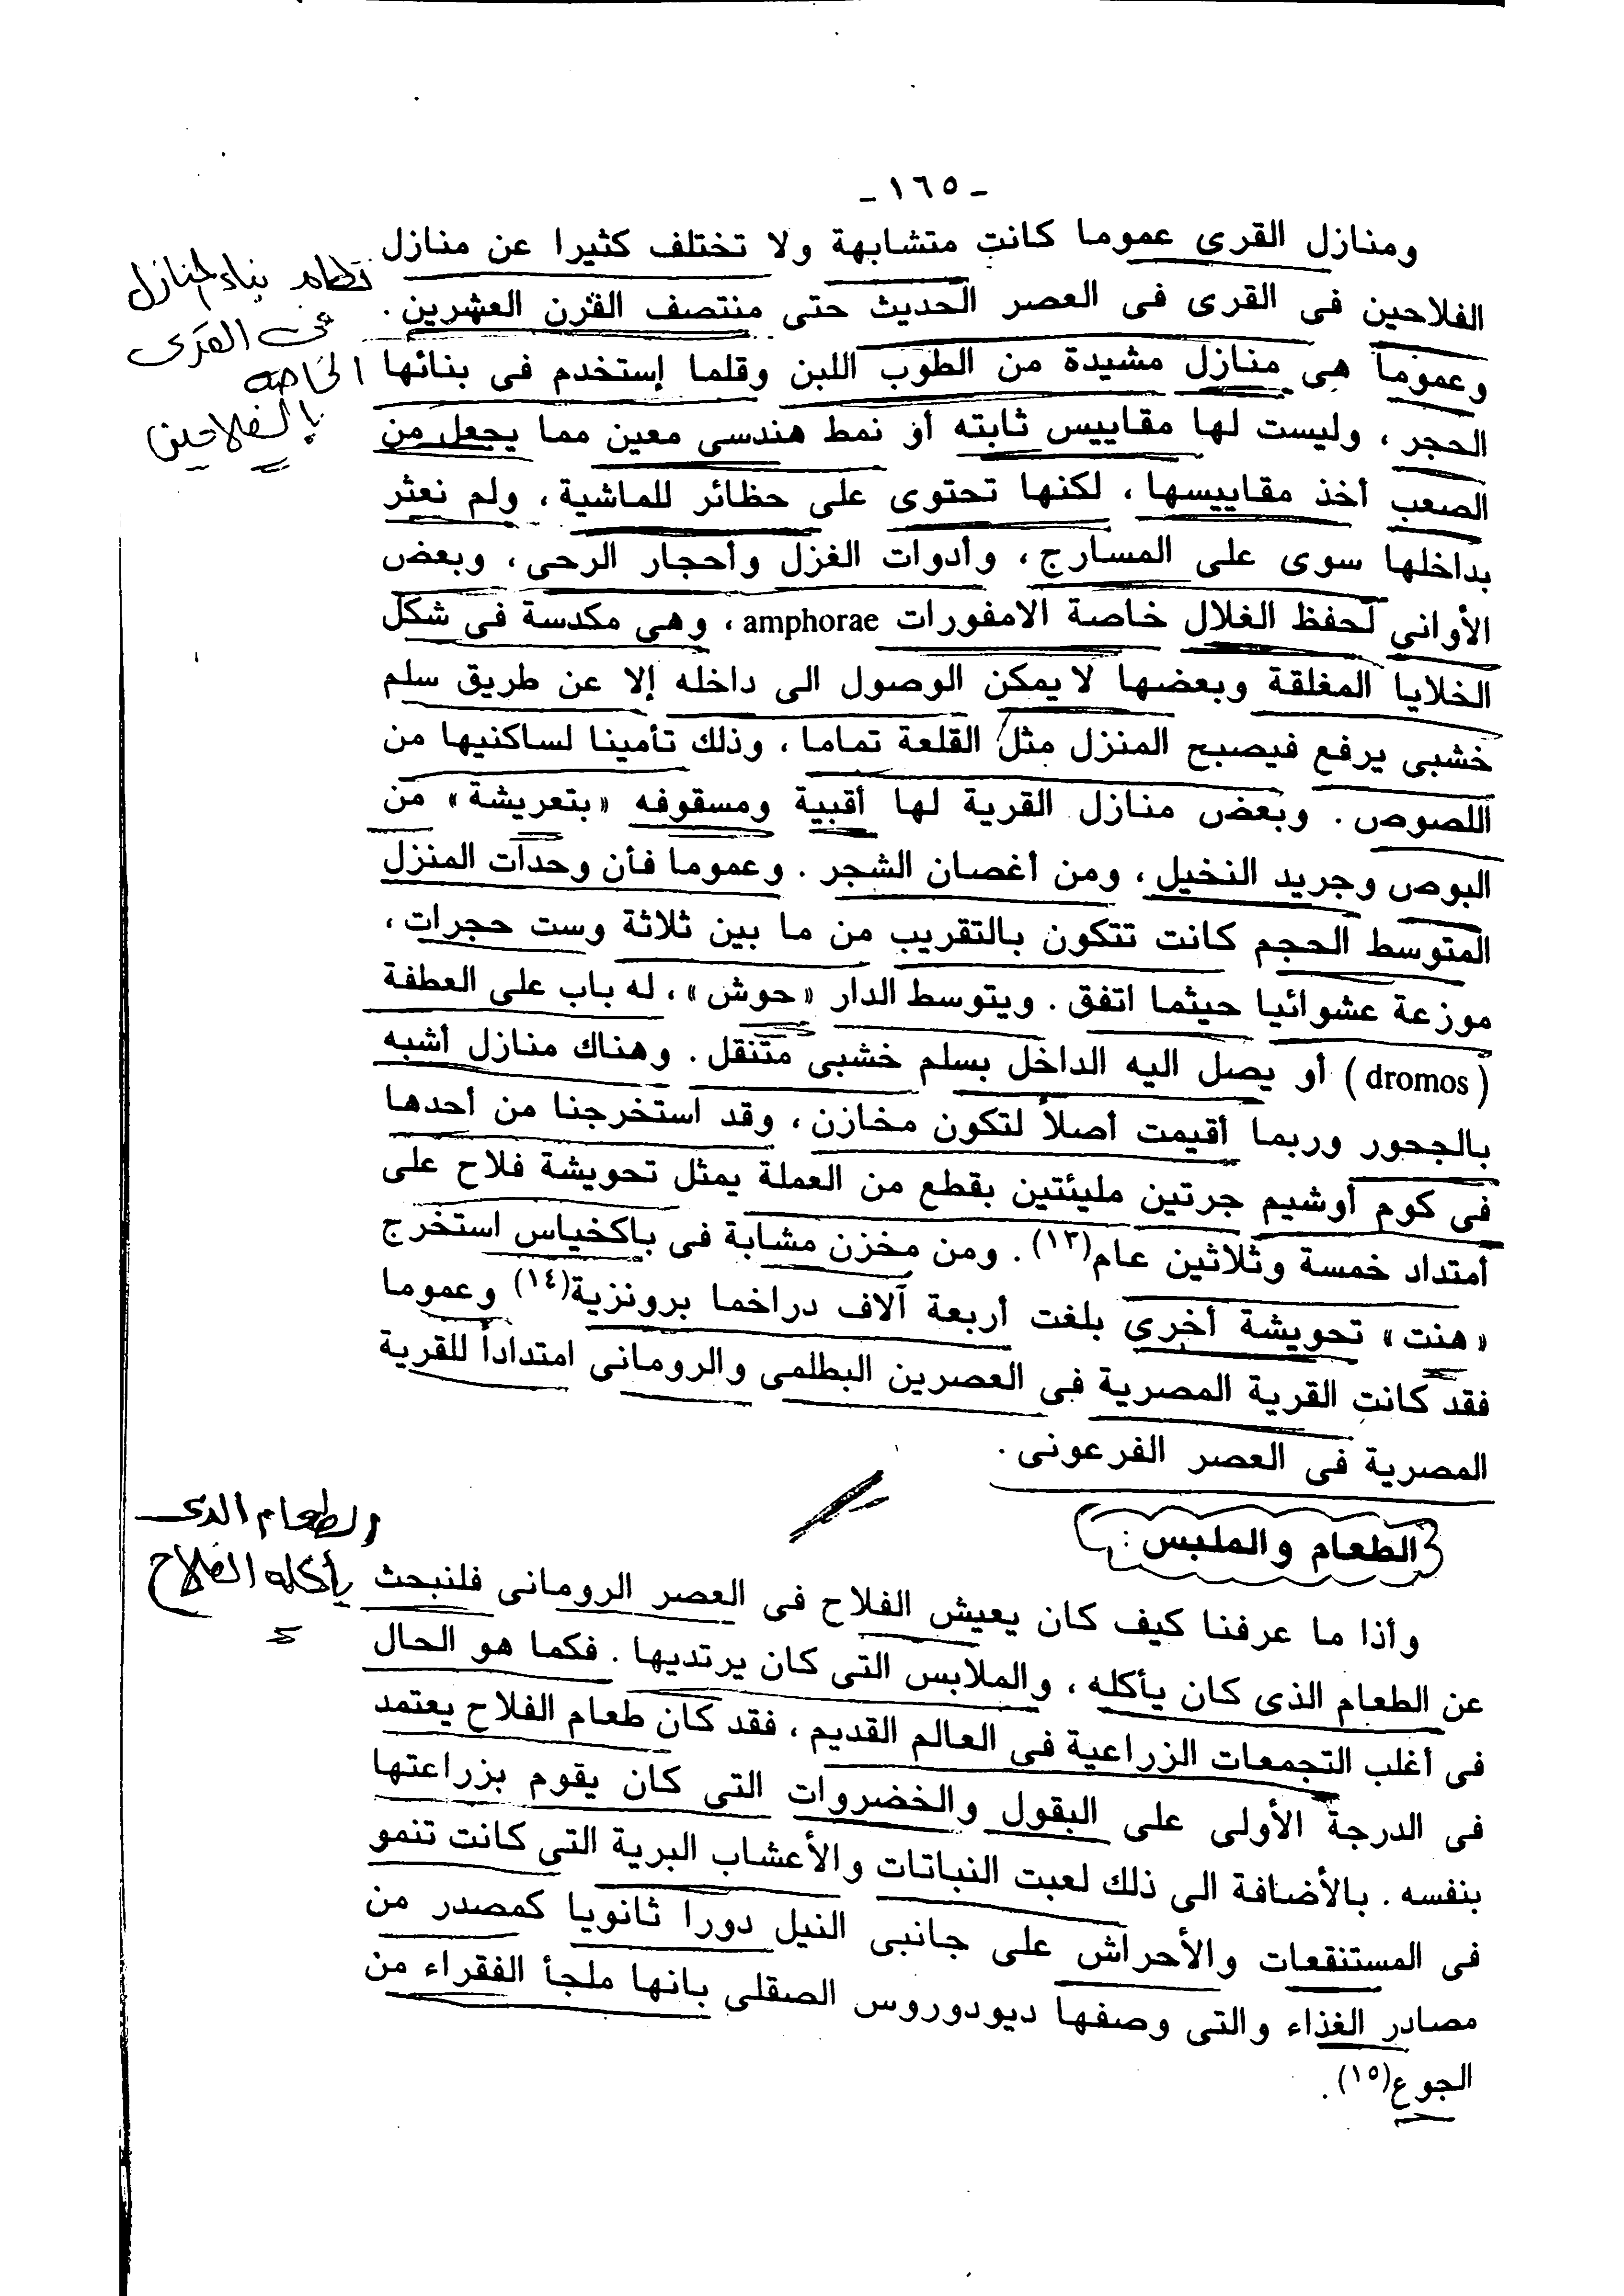 - ١٦٥ -
ومنازل القرى عموما كانت متشابهة ولا تختلف كثيرا عن منازل
الفلاحين فى القرى فى العصر الحديث حتى منتصف القرن العشرين .
وعموما هى منازل مشيدة من الطوب اللبن وقلما إستخدم فى بنائها
الحجر ، وليست لها مقاييس ثابته أو نمط هندسى معين مما يجعل من
الصعب أخذ مقاييسها ، لكنها تحتوى على حظائر للماشية ، ولم نعثر
بداخلها سوى على المسارج ، وأدوات الغزل وأحجار الرحى ، وبعض
الأوانى لحفظ الغلال خاصة الامفورات amphorae ، وهى مكدسة فى شكل
الخلايا المغلقة وبعضها لا يمكن الوصول الى داخله إلا عن طريق سلم
خشبى يرفع فيصبح المنزل مثل القلعة تماما ، وذلك تأمينا لساكنيها من
اللصوص . وبعض منازل القرية لها أقبية ومسقوفه «بتعريشة» من
البوص وجريد النخيل ، ومن أغصان الشجر . وعموما فأن وحدات المنزل
المتوسط الحجم كانت تتكون بالتقريب من ما بين ثلاثة وست حجرات ،
موزعة عشوائيا حيثما اتفق . ويتوسط الدار «حوش» ، له باب على العطفة
(dromos) أو يصل اليه الداخل بسلم خشبى متنقل . وهناك منازل أشبه
بالجحور وربما أقيمت أصلاً لتكون مخازن ، وقد استخرجنا من أحدها
فى كوم أوشيم جرتين مليئتين بقطع من العملة يمثل تحويشة فلاح على
أمتداد خمسة وثلاثين عام(١٣) . ومن مخزن مشابة فى باكخياس استخرج
«هنت» تحويشة أخرى بلغت أربعة آلاف دراخما برونزية(١٤) وعموما
فقد كانت القرية المصرية فى العصرين البطلمى والرومانى امتداداً للقرية
المصرية فى العصر الفرعونى .
نظام بناء المنازل
فى القرى
الخاصه
بالفلاحين
الطعام والملبس :
وأذا ما عرفنا كيف كان يعيش الفلاح فى العصر الرومانى فلنبحث
عن الطعام الذى كان يأكله ، والملابس التى كان يرتديها . فكما هو الحال
فى أغلب التجمعات الزراعية فى العالم القديم ، فقد كان طعام الفلاح يعتمد
فى الدرجة الأولى على البقول والخضروات التى كان يقوم بزراعتها
بنفسه . بالأضافة الى ذلك لعبت النباتات والأعشاب البرية التى كانت تنمو
فى المستنقعات والأحراش على جانبى النيل دورا ثانويا كمصدر من
مصادر الغذاء والتى وصفها ديودوروس الصقلى بانها ملجأ الفقراء من
الجوع(١٥) .
الطعام الذى
يأكله الفلاح